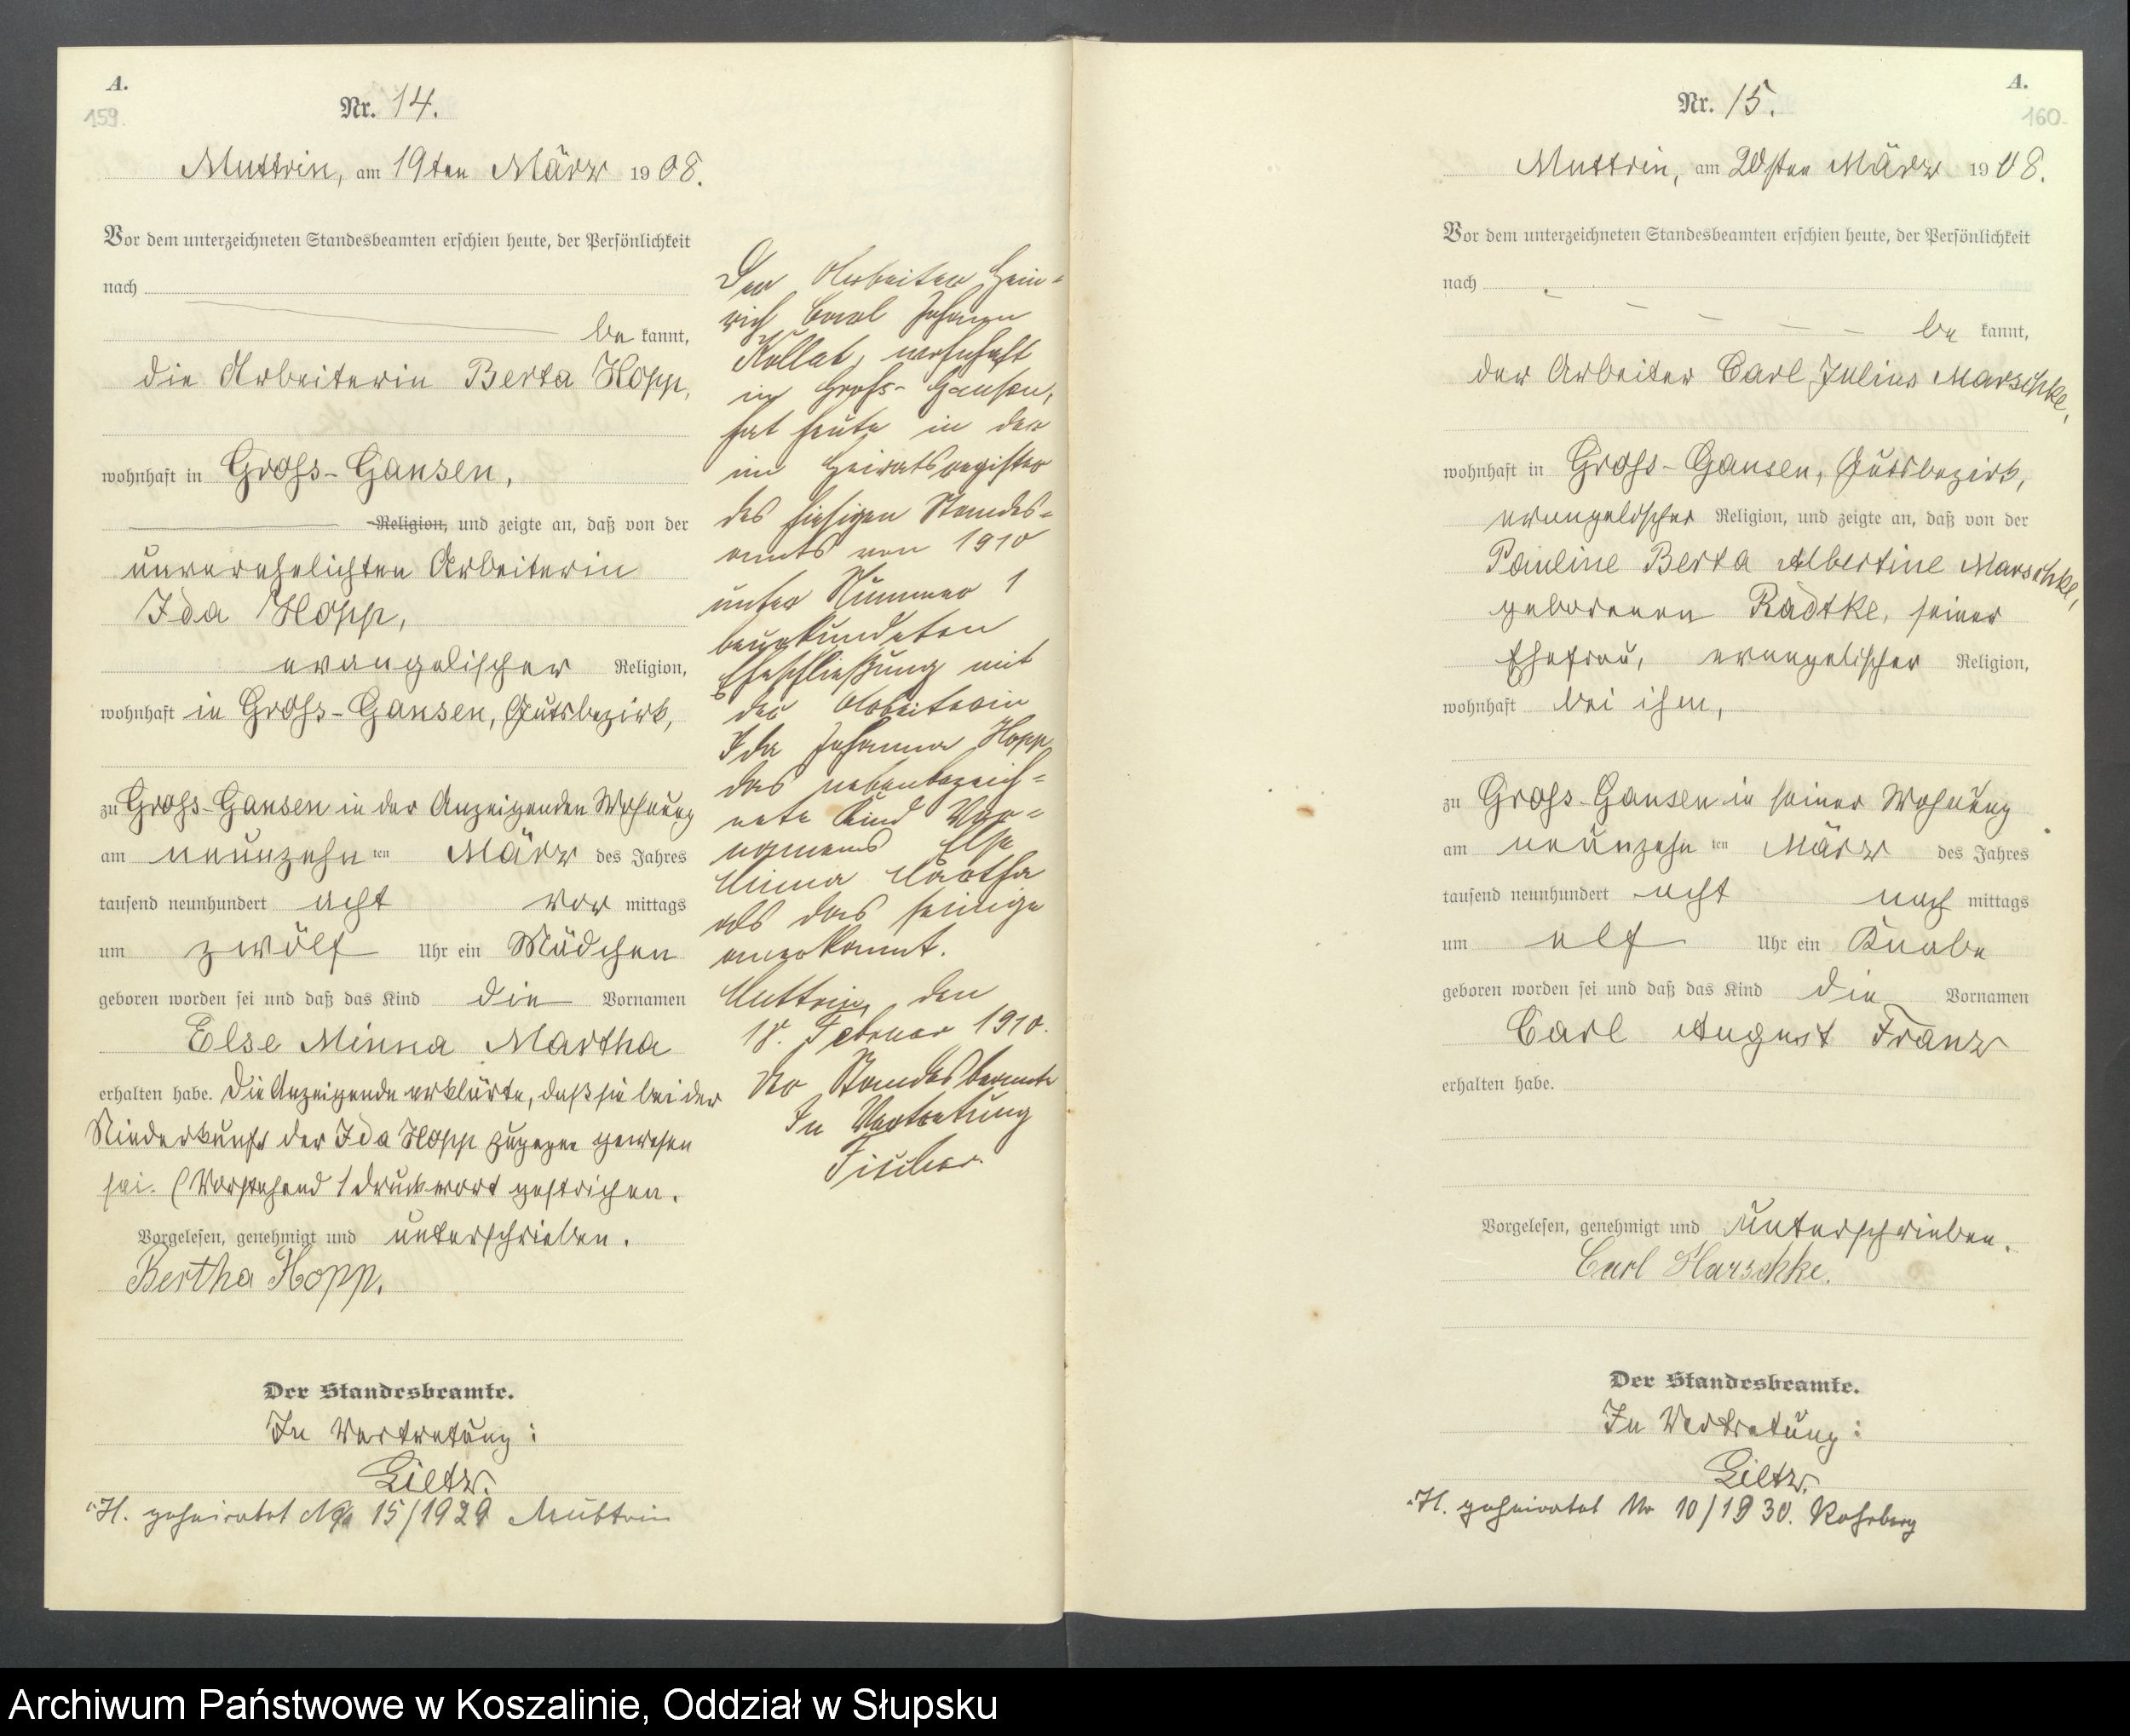 A.
159.
Nr. 14.
Muttrin, am 19ten März 1908.
Vor dem unterzeichneten Standesbeamten erschien heute, der Persönlichkeit
nach
be kannt,
die Arbeiterin Berta Hopp,
wohnhaft in Gross-Gansen,
Religion, und zeigte an, daß von der
unverehelichten Arbeiterin
Ida Hopp,
evangelischer Religion,
wohnhaft in Gross-Gansen, Gutsbezirk,
zu Gross-Gansen in der Anzeigenden Wohnung
am neunzehn ten März des Jahres
tausend neunhundert acht vor mittags
um zwölf Uhr ein Mädchen
geboren worden sei und daß das Kind die Vornamen
Else Minna Martha
erhalten habe. Die Anzeigende erklärte, daß sie bei der
Niederkunft der Ida Hopp zugegen gewesen
sei. (Vorstehend 1 Druckwort gestrichen.
Vorgelesen, genehmigt und unterschrieben.
Bertha Hopp.
Der Standesbeamte.
In Vertretung:
Zieltz.
H. geheiratet No 15/1929 Muttrin
Der Arbeiter Hein=
rich Carl Johann
Kollat, wohnhaft
in Gross-Gansen,
hat heute in der
im Heiratsregister
des hiesigen Standes=
amts von 1910
unter Nummer 1
beurkundeten
Eheschließung mit
der Arbeiterin
Ida Johanna Hopp
das nebenbezeich=
nete Kind Vor=
namens Else
Minna Martha
als das seinige
anerkannt.
Muttrin, den
18. Februar 1910.
Der Standesbeamte
In Vertretung
Fischer.
A.
160.
Nr. 15.
Muttrin, am 20sten März 1908.
Vor dem unterzeichneten Standesbeamten erschien heute, der Persönlichkeit
nach
be kannt,
der Arbeiter Carl Julius Marschke,
wohnhaft in Gross-Gansen, Gutsbezirk,
evangelischer Religion, und zeigte an, daß von der
Pauline Berta Albertine Marschke,
geborenen Radtke, seiner
Ehefrau, evangelischer Religion,
wohnhaft bei ihm,
zu Gross-Gansen in seiner Wohnung
am neunzehn ten März des Jahres
tausend neunhundert acht nach mittags
um elf Uhr ein Knabe
geboren worden sei und daß das Kind die Vornamen
Carl August Franz
erhalten habe.
Vorgelesen, genehmigt und unterschrieben.
Carl Marschke.
Der Standesbeamte.
In Vertretung:
Zieltz.
H. geheiratet Nr 10/1930. Rohrberg
Archiwum Państwowe w Koszalinie, Oddział w Słupsku